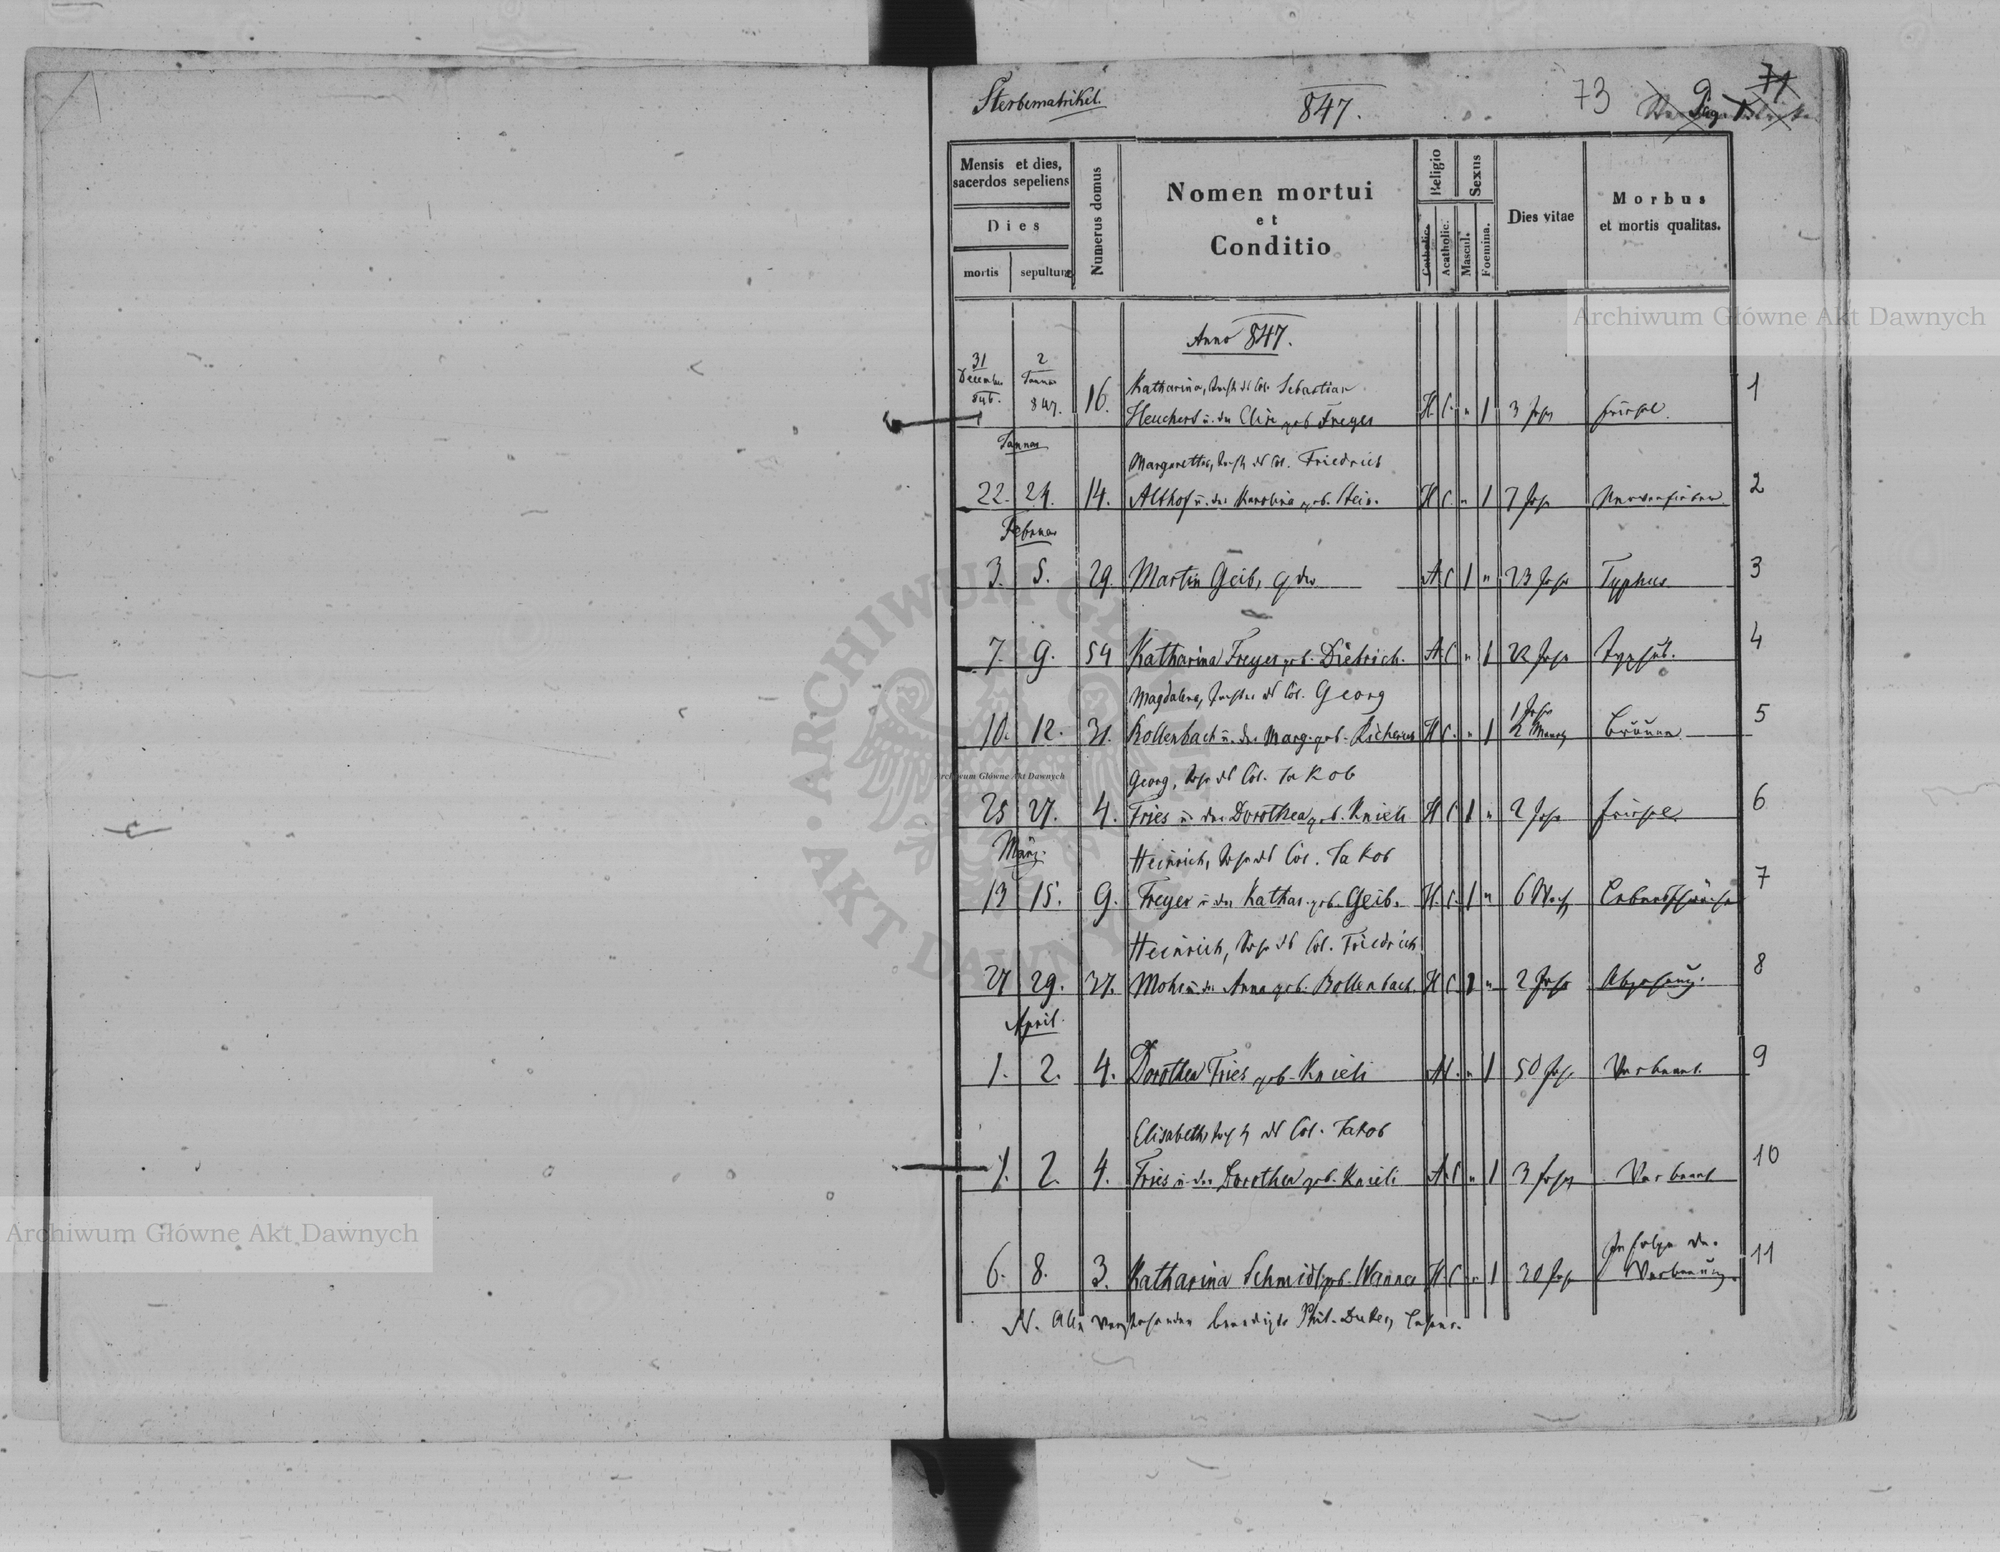 Sterbematrikel.
847.
73
71
Pag
Mensis et dies,
sacerdos sepeliens
Dies
mortis
sepulturæ
Numerus domus
Nomen mortui
et
Conditio
Religio
Catholic.
Acatholic.
Sexus
Mascul.
Foemina.
Dies vitae
Morbus
et mortis qualitas.
Anno 847.
31 December 846. 2 Januar 847. 16. Katharina, Tocht. des Col. Sebastian
Heuchert u. der Elise geb. Freyer H. C. " 1 3 Jahr Frisel. 1
Januar
Margaretha, Tocht. des Col. Friedrich
22. 24. 14. Althof u. der Karolina geb. Stein. H C. " 1 7 Jahr Nervenfieber 2
Februar
3. 5. 29. Martin Geib, A C 1 " 23 Jahr Typhus 3
7. 9. 54 Katharina Freyer geb. Dietrich. A C " 1 22 Jahr Typhus. 4
Magdalena, Tochter des Col. Georg
10. 12. 31. Rollenbach u. der Marg. geb. H C. " 1 1 Jahr 2 Monath Bräune 5
Georg, Sohn des Col. Jakob
25 27. 4. Fries u. der Dorothea geb. Knieli H C 1 " 2 Jahr Frisel. 6
März.
Heinrich, Sohn des Col. Jakob
13 15. 9. Freyer u. der Kathar. geb. Geib. H. C. 1 " 6 Woch Lebensschwäche 7
Heinrich, Sohn des Col. Friedrich
27 29. 37. Mohr u. der Anna geb. Bollenbach. H C. 1 " 2 Jahr Abzehrung. 8
April.
1. 2. 4. Dorothea Fries geb. Knieli A C. " 1 50 Jahr Verbrant. 9
Elisabeth, Tocht des Col. Jakob
1. 2. 4. Fries u. der Dorothea geb. Knieli A C " 1 3 Jahr Verbrant 10
In Folge der
6. 8. 3. Katharina Schmidt geb. Wanner H C " 1 30 Jahr Verbrenung. 11
N. Alle vorstehenden beerdigte Phil. Lehrer.
Archiwum Główne Akt Dawnych
Archiwum Główne Akt Dawnych
Archiwum Główne Akt Dawnych
ARCHIWUM GŁÓWNE AKT DAWNYCH